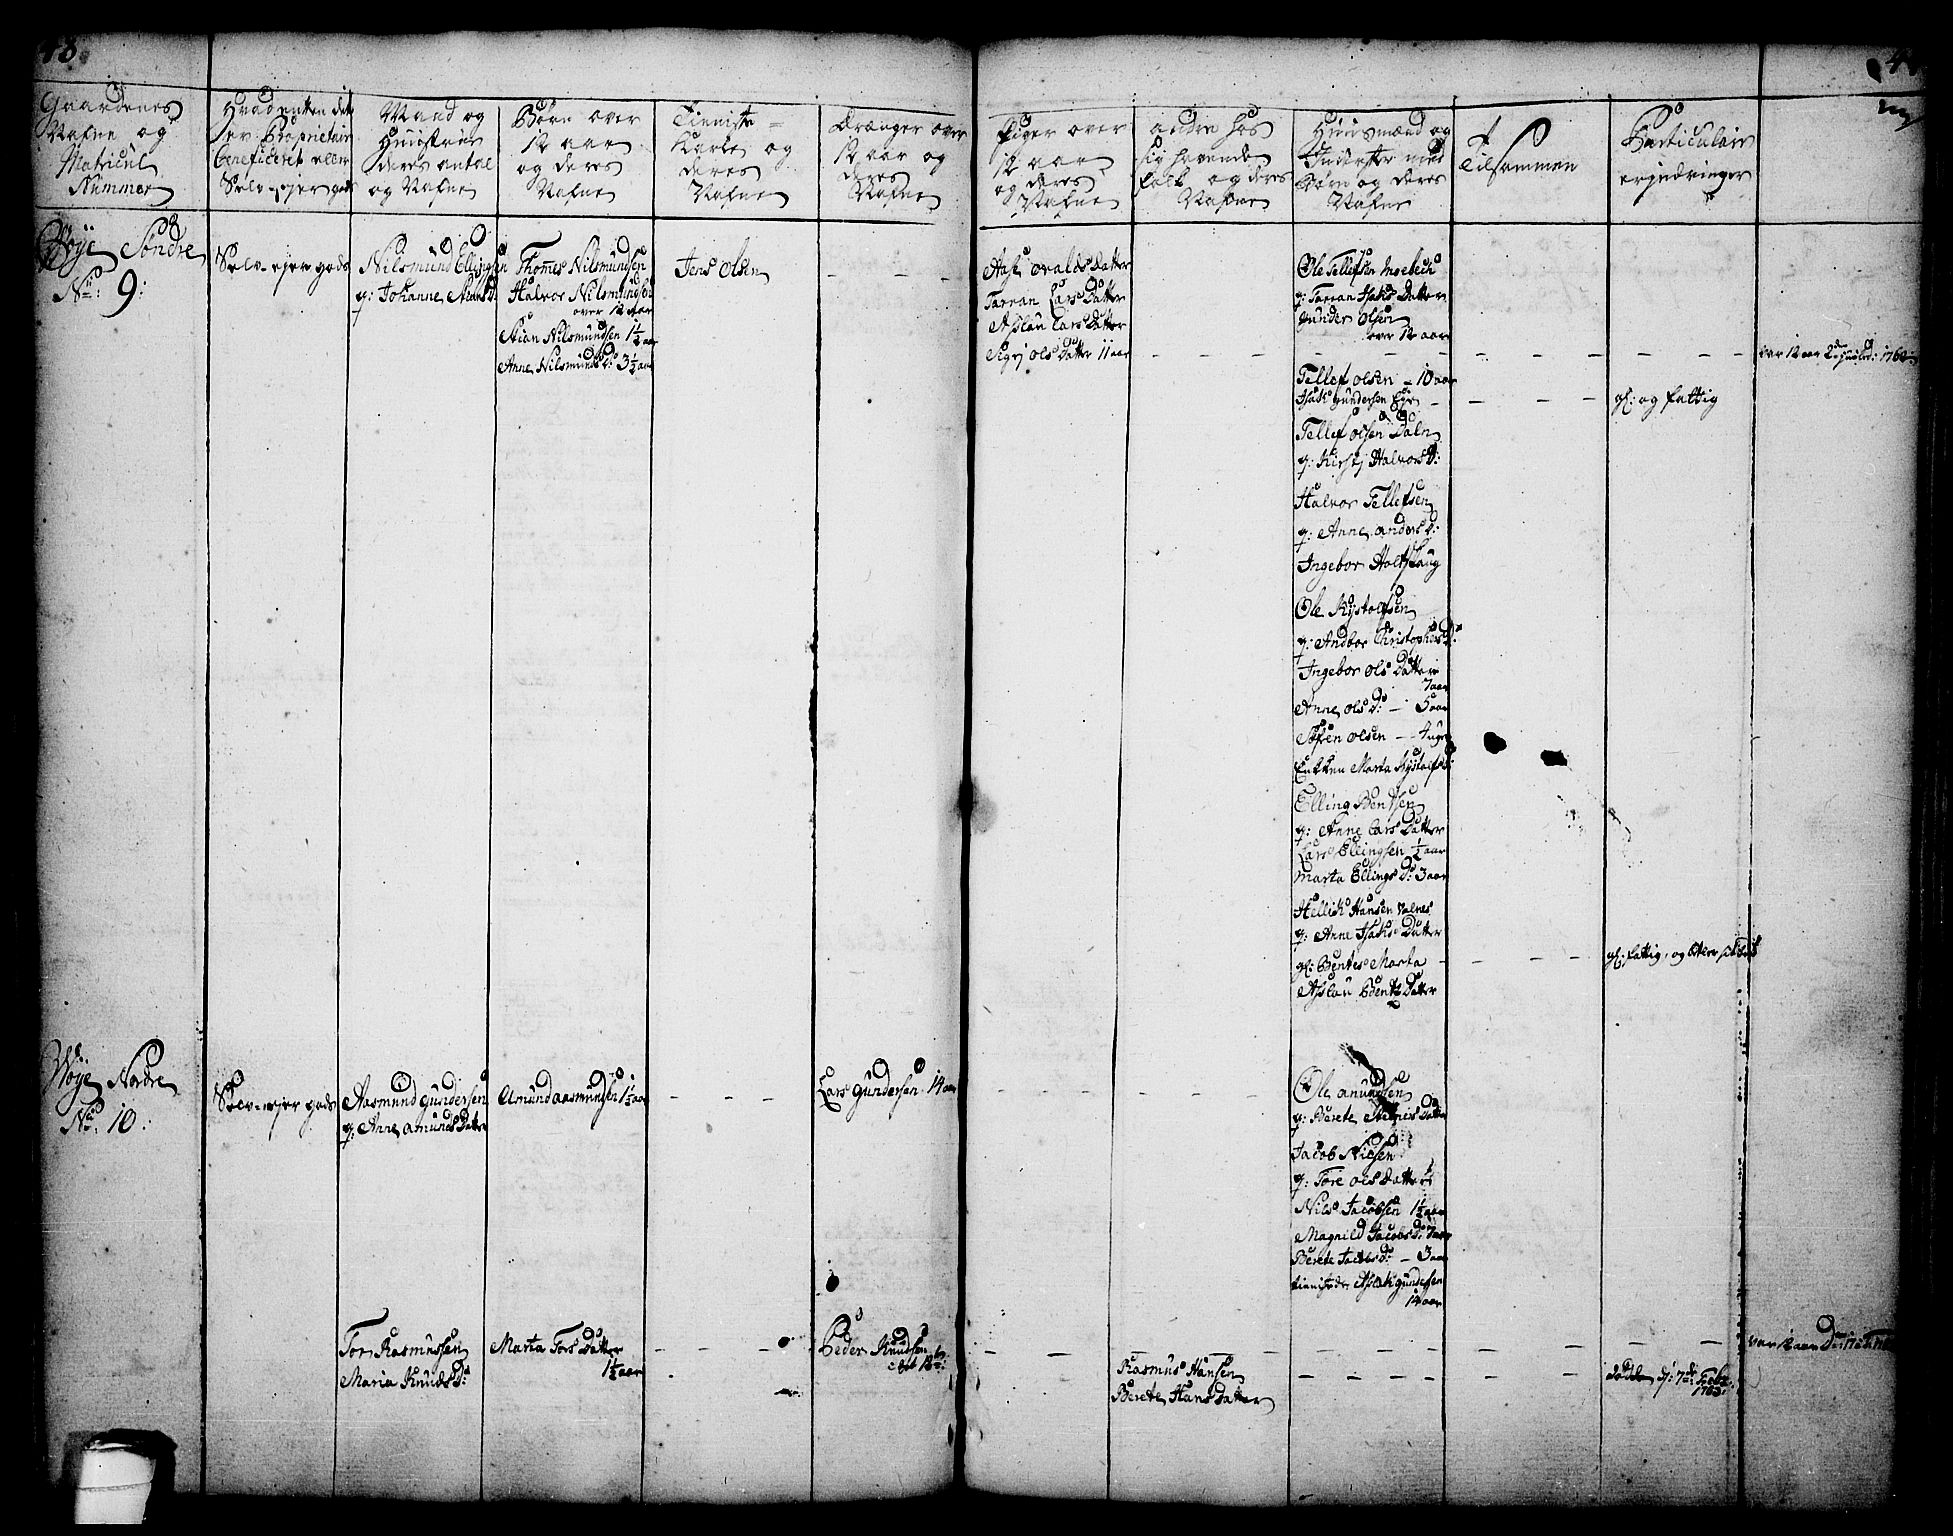 48.
Gaardenes
Nafne og
Matricul
Nummer
Hvad enten det
er Proprietair
beneficeret eller
Selv-ejer gods
Mand og
Huustrue
deres antal
og Nafne
Børn over
12 aar
og deres
Nafne
Tieniste
Karle og
deres
Nafne
Drænger over
12 aar og
deres
Nafne
Piger over
12 aar
og deres
Nafne
andre hos
sig havende
folk og deres
Nafne
Huusmænd og
Inderster med
Børn og deres
Nafne
Tilsammen
Particulair
erindringer
Woye Søndre
No: 9:
Selv-ejer gods
Nilsmund Ellingsen
q: Johanne Stians D:
Thomes Nilsmundsen
Halvor Nilsmundsen
over 12 aar
Stian Nilsmundsen 1½ aar
Anne Nilsmunds D: 3½ aar
Jens Olsen
Aase Ovalds Datter
Tarran Lars Datter
Asslau Lars Datter
Sigri Ols Datter 11 aar
Ole Tellefsen Moebech
q: Tarran Isaks Datter
Gunder Olsen
over 12 aar
var 12 aar 1762
Tellef Olsen - 10 aar
Isak Gundersen
gl: og fattig
Tellef Olsen Daln
q: Kirsti Halvors D:
Halvor Tellefsen
q: Anne Anders D:
Ingebor Holtzlaug
Ole Kystolfsen
q: Andbor Christophers D:
Ingebor Ols Datter
7 aar
Anne Ols D: - 5 aar
Steen Olsen - 4 uger
Enken Marta Kystolfs D:
Elling Bentsen
q: Anne Lars Datter
Lars Ellingsen ½ aar
Marta Ellings D: 3 aar
Hellik Hansen Valnes
q: Anne Isaks Datter
gl: Bentes Marta
gl: fattig, og
Asslau Bents Datter
Woye Nordre
No: 10:
Selv-ejer gods
Aasmund Gundersen
q: Anne Amunds Datter
Amund Aasmundsen 1½ aar
Lars Gundersen 14 aar
Ole Amundsen
q: Berete Steners Datter
Jacob Nilsen
q: Tore Ols Datter
Nils Jacobsen 1½ aar
Magnild Jacobs D: 7 aar
Berete Jacobs D: - 3 aar
Aslak Gundersen
14 aar
Tor Rasmussen
Maria Knuds D:
Marta Tors Datter
1½ aar
Peder Knudsen
Rasmus Hansen
Berete Hans Datter
døde d: 7de Febr:
1763: